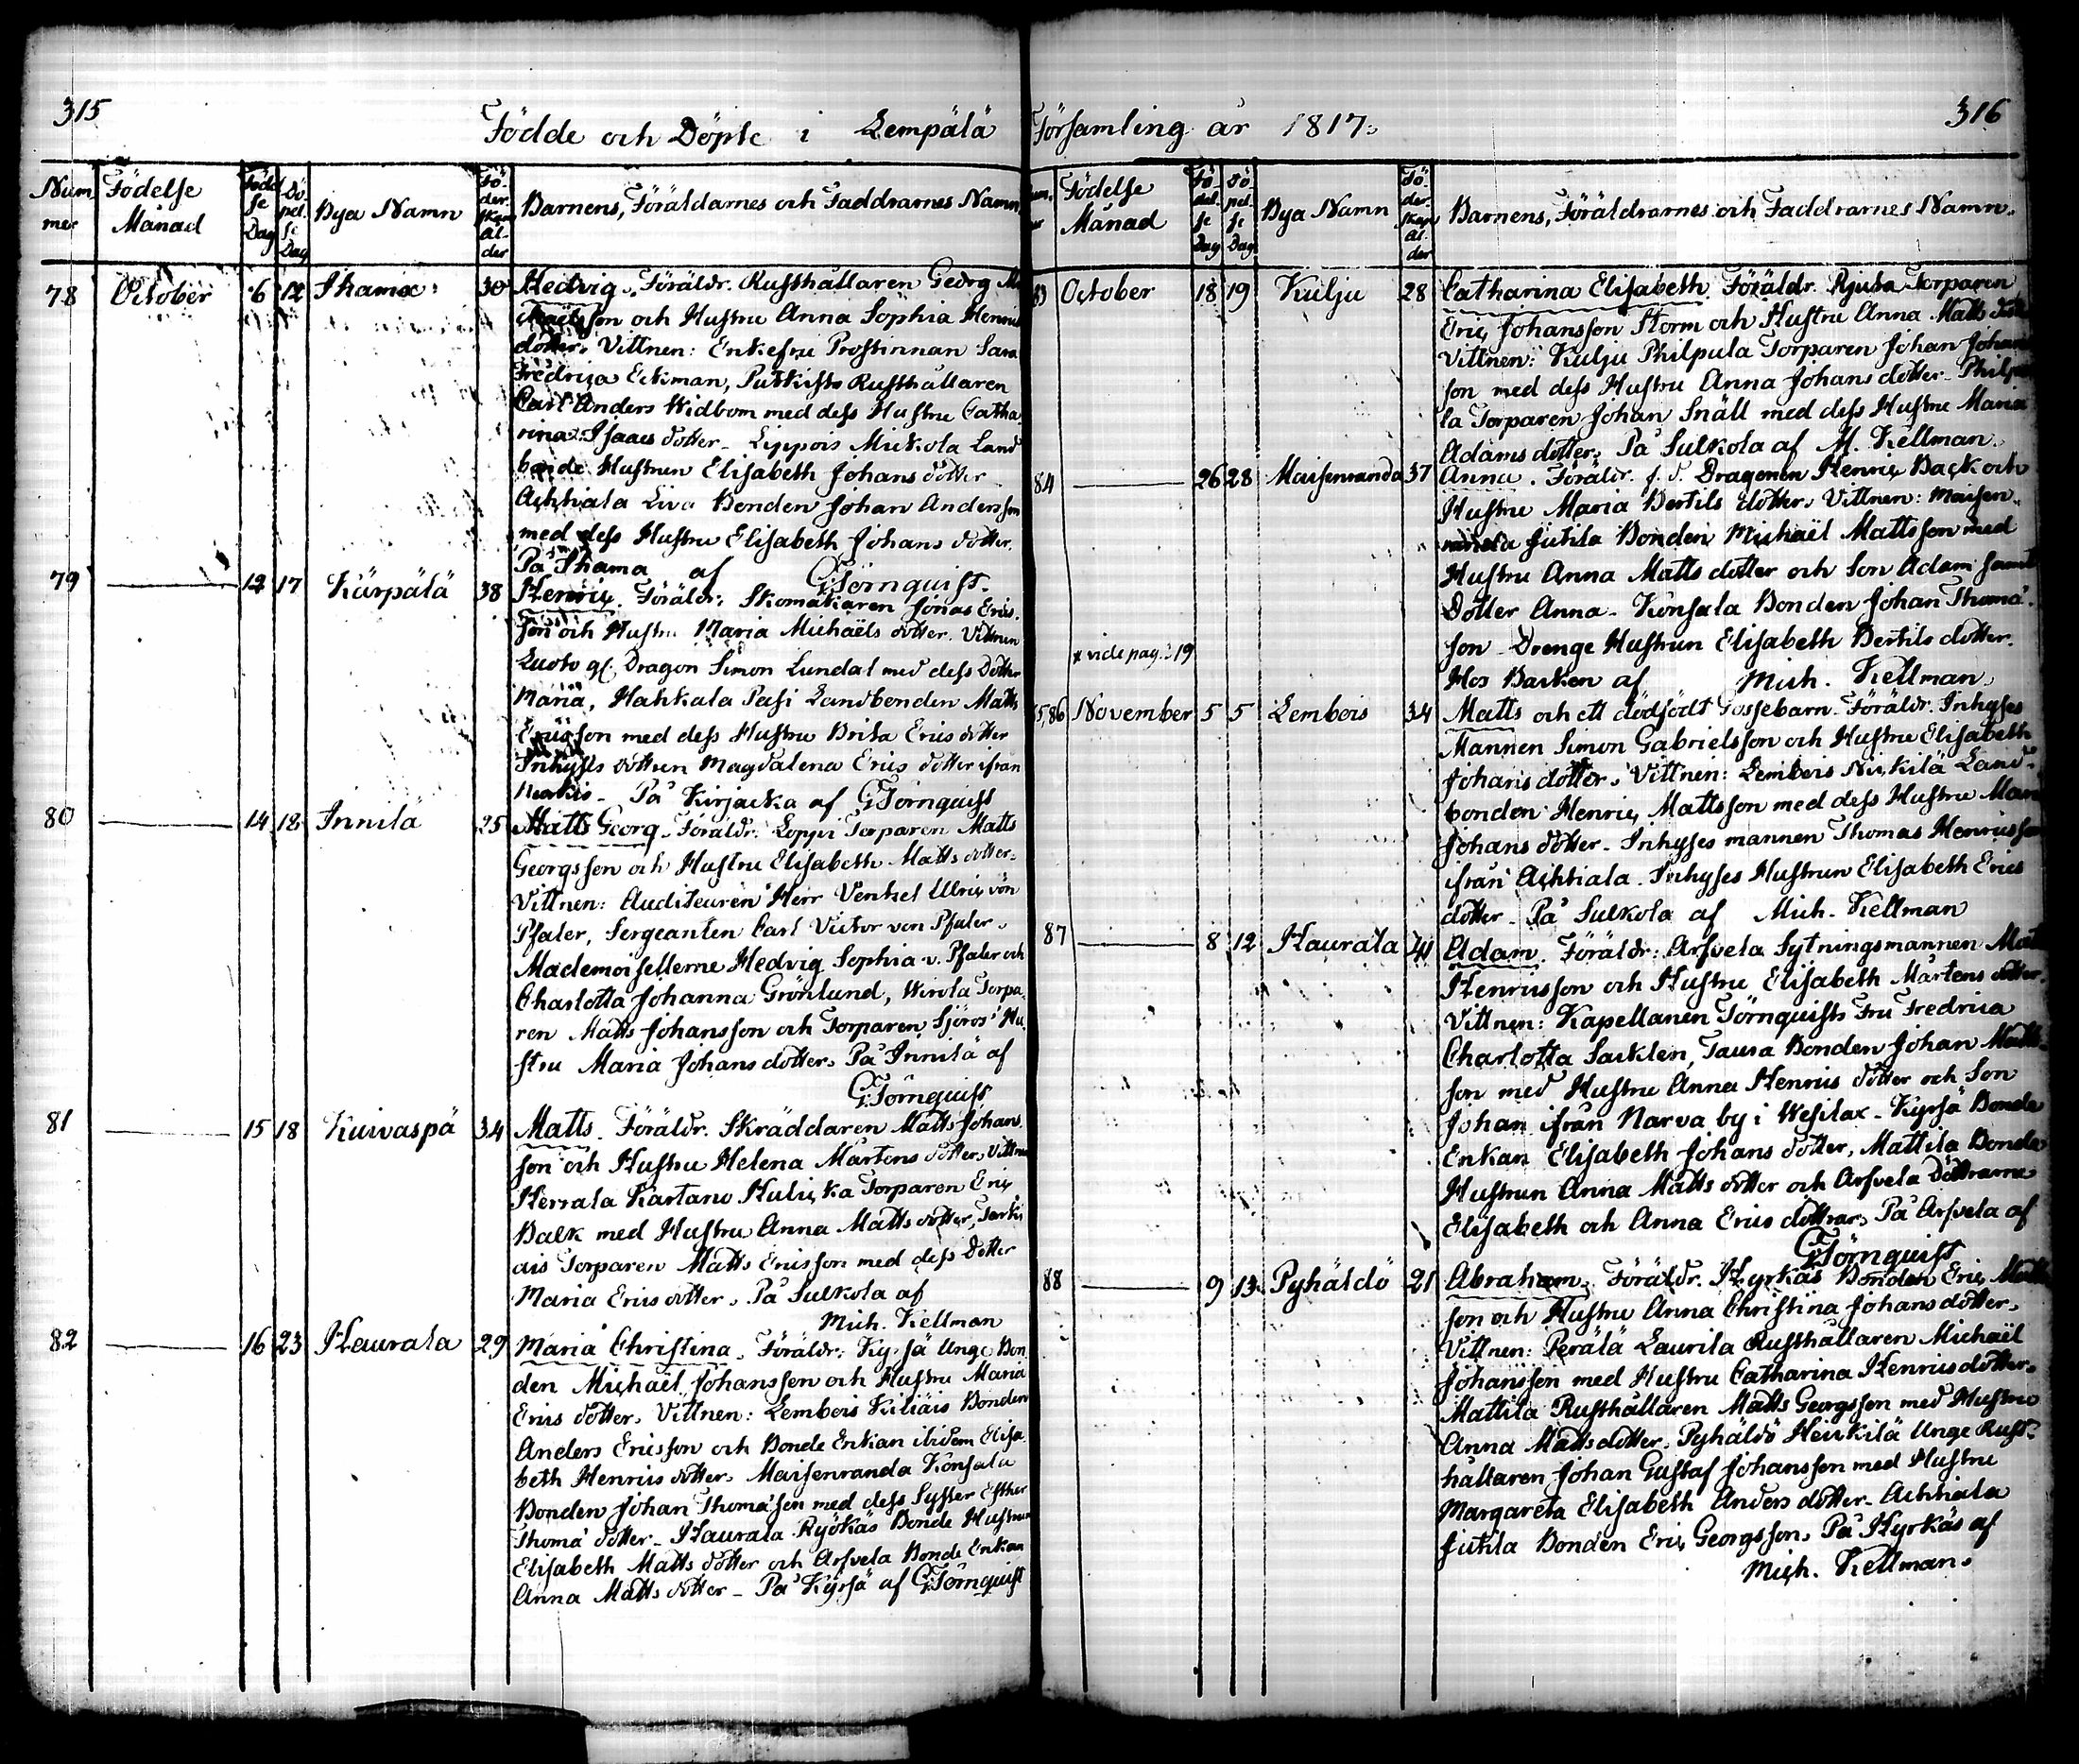 315
Födde och Döpte i Lempälä
Num mer
Födelse Månad
Föd el se Dag
Dö pel se Dag
Bya Namn
För- der- skan Ål- der
Barnens, Föräldarnes och Faddrarnes Namn
78 October 6 12 Ihamo 30 Hedvig. Föräldr. Rusthållaren Georg
son och Hustru Anna Sophia Henrics
dotter. Vittnen: Enkefru Prostinnan Sara
Fredrica Eckman, Rusthållaren
Carl Anders Widbom med dess Hustru Catha
rina Isaacs dotter - Lippois Mickola Land
bonde Hustrun Elisabeth Johans dotter
Achtiala Liva Bonden Johan Andersson
med dess Hustru Elisabeth Johans dotter.
På Ihama af G: Törnquist.
79 ——— 12 17 Kärpälä 38 Henric. Föräldr: Skomakaren Jonas Erics
son och Hustru Maria Michaëls dotter. Vittnen
Dragon Simon Lundal med dess Dotter
Maria, Hahkala Pasi Landbonden Matts
Ericsson med dess Hustru Brita Erics dotter
Inhyses dottren Magdalena Erics dotter ifrån
På Kirjacka af G: Törnquist
80 ——— 14 18 Innilä 25 Matts Georg. Föräldr: Loppi Torparen Matts
Georgsson och Hustru Elisabeth Matts dotter.
Vittnen: Auditeuren Herr Ventzel Ulric von
Pfaler, Sergeanten Carl Victor von Pfaler,
Mademoisellerne Hedvig Sophia v. Pfaler och
Charlotta Johanna Grönlund, Wirola Torpa-
ren Matts Johansson och Torparen Sjöros' Hu-
stru Maria Johans dotter. På Innilä af
G: Törnquist
81 ——— 15 18 Kuivaspä 34 Matts. Föräldr. Skräddaren Matts Johans
son och Hustru Helena Mårtens dotter, Vittnen
Herrala Kartano Torparen Eric
Balk med Hustru Anna Matts dotter,
Torparen Matts Ericsson med dess Dotter
Maria Erics dotter. På Sulkola af
Mich. Kellman
82 ——— 16 23 Haurala 29 Maria Christina. Föräldr: Kyrsä Unge Bon
den Michaël Johansson och Hustru Maria
Erics dotter. Vittnen: Lembois Kiliäis Bonden
Anders Ericsson och Bonde Enkan ibidem Elisa
beth Henrics dotter. Maisenranda Konsala
Bonden Johan Thomasson med dess Syster Esther
Thomæ dotter - Haurala Ryökäs Bonde Hustrun
Elisabeth Matts dotter och Arfvela Bonde Enkan
Anna Matts dotter - På Kyrsä af G: Törnquist
316
Församling år 1817.
Födelse Månad
Fö- del- se Dag
Dö- pel- se Dag
Bya Namn
Fö- der- skan Ål- der
Barnens, Föräldrarnes och Faddrarnes Namn.
83 October 18 19 Kulju 28 Catharina Elisabeth. Föräldr. Torparen
Eric Johansson Storm och Hustru Anna Matts dotter
Vittnen: Kulju Philpula Torparen Johan Johans
son med dess Hustru Anna Johans dotter - Philpu
la Torparen Johan Snäll med dess Hustru Maria
Adams dotter. På Sulkola af M. Kellman.
84 ——— 26 28 Maisenranda 37 Anna. Föräldr. f. d. Dragonen Henric Back och
Hustru Maria Bertils dotter. Vittnen: Maisen-
randa Jutila Bonden Michaël Mattsson med
Hustru Anna Matts dotter och Son Adam samt
Dotter Anna - Konsala Bonden Johan Thomæ-
son - Drenge Hustrun Elisabeth Bertils dotter.
Hos Backen af Mich. Kellman.
* vide pag: 19
85,86 November 5 5 Lembois 34 Matts och ett dödfödt Gossebarn. Föräldr. Inhyses
Mannen Simon Gabrielsson och Hustru Elisabeth
Johans dotter. Vittnen: Lembois Nickilä Land-
bonden Henric Mattsson med dess Hustru Maria
Johans dotter - Inhyses mannen Thomas Henricsson
ifrån Achtiala. Inhyses Hustrun Elisabeth Erics
dotter - På Sulkola af Mich. Kellman
87 ——— 8 12 Haurala 41 Adam. Föräldr: Arfvela Sytningsmannen Matts
Henricsson och Hustru Elisabeth Mårtens dotter.
Vittnen: Kapellanen Törnquists Fru Fredrica
Charlotta Sacklen, Taura Bonden Johan Matts-
son med Hustru Anna Henrics dotter och Son
Johan ifrån Narva by i Wesilax - Kyrsä Bonde
Enkan Elisabeth Johans dotter, Mattila Bonde
Hustrun Anna Matts dotter och Arfvela Döttrarne
Elisabeth och Anna Erics döttrar. På Arfvela af
G: Törnquist
88 ——— 9 13 Pyhäldö 21 Abraham. Föräldr. Hyrkäs Bonden Eric Matts
son och Hustru Anna Christina Johans dotter.
Vittnen: Perälä Laurila Rusthållaren Michaël
Johansson med Hustru Catharina Henrics dotter.
Mattila Rusthållaren Matts Georgsson med Hustru
Anna Matts dotter. Pyhäldö Heickilä Unge Rust-
hållaren Johan Gustaf Johansson med Hustru
Margareta Elisabeth Anders dotter - Achtiala
Jutila Bonden Eric Georgsson. På Hyrkäs af
Mich. Kellman.